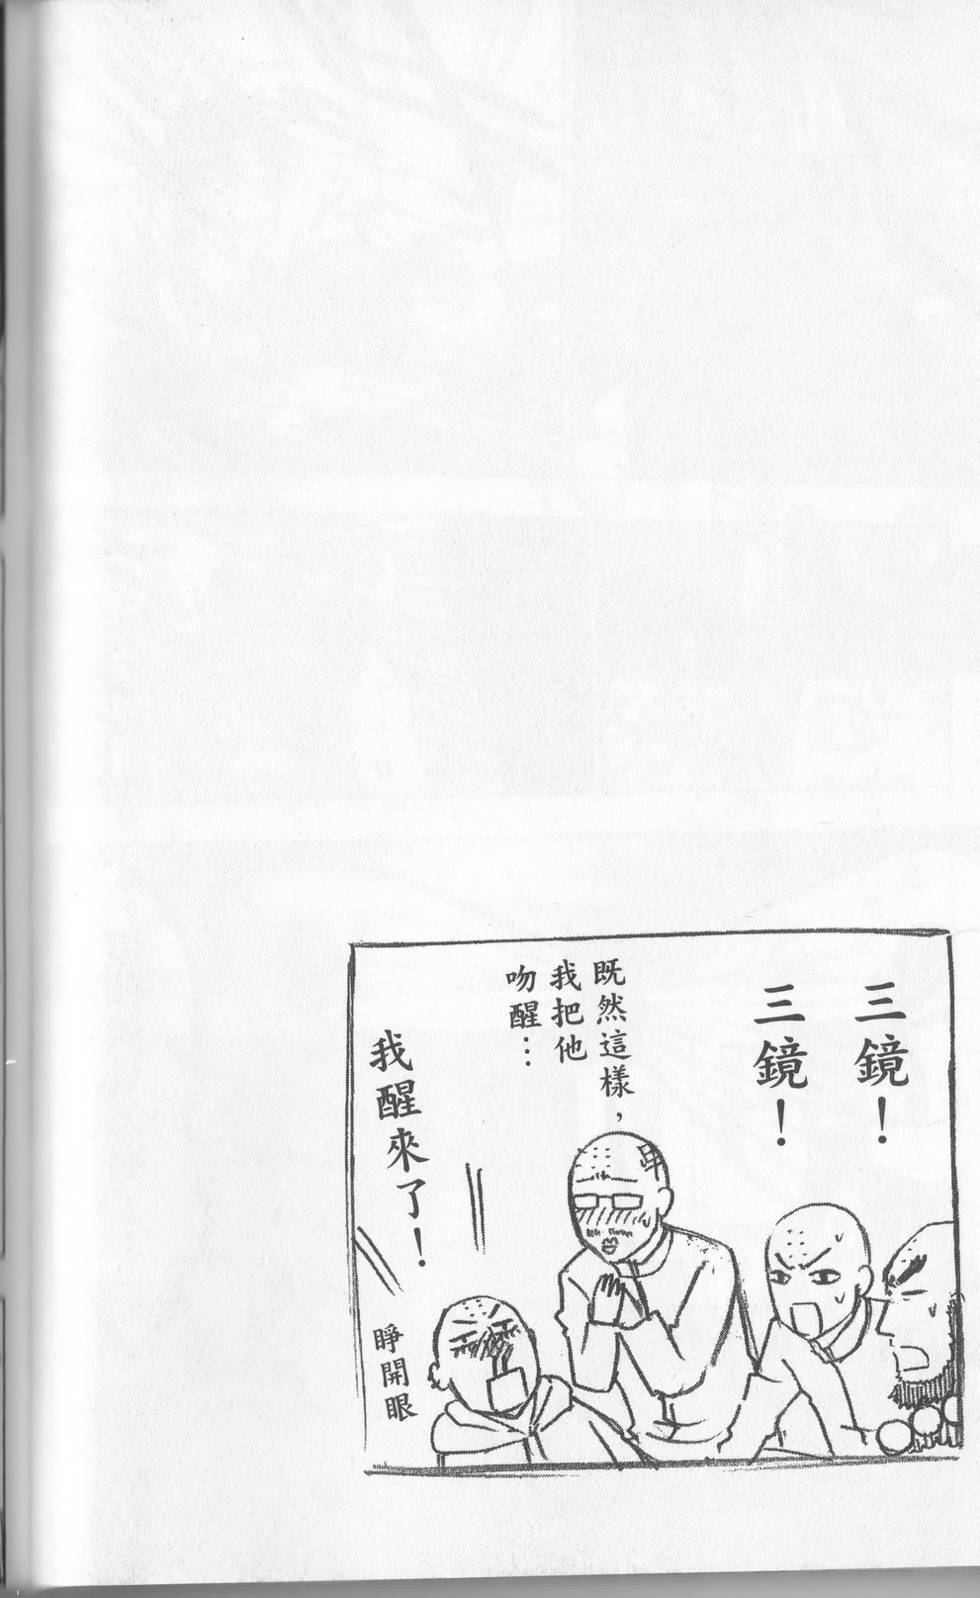 三鏡！
三鏡！
既然這樣，
我把他
吻醒…
我醒來了！
睜開眼